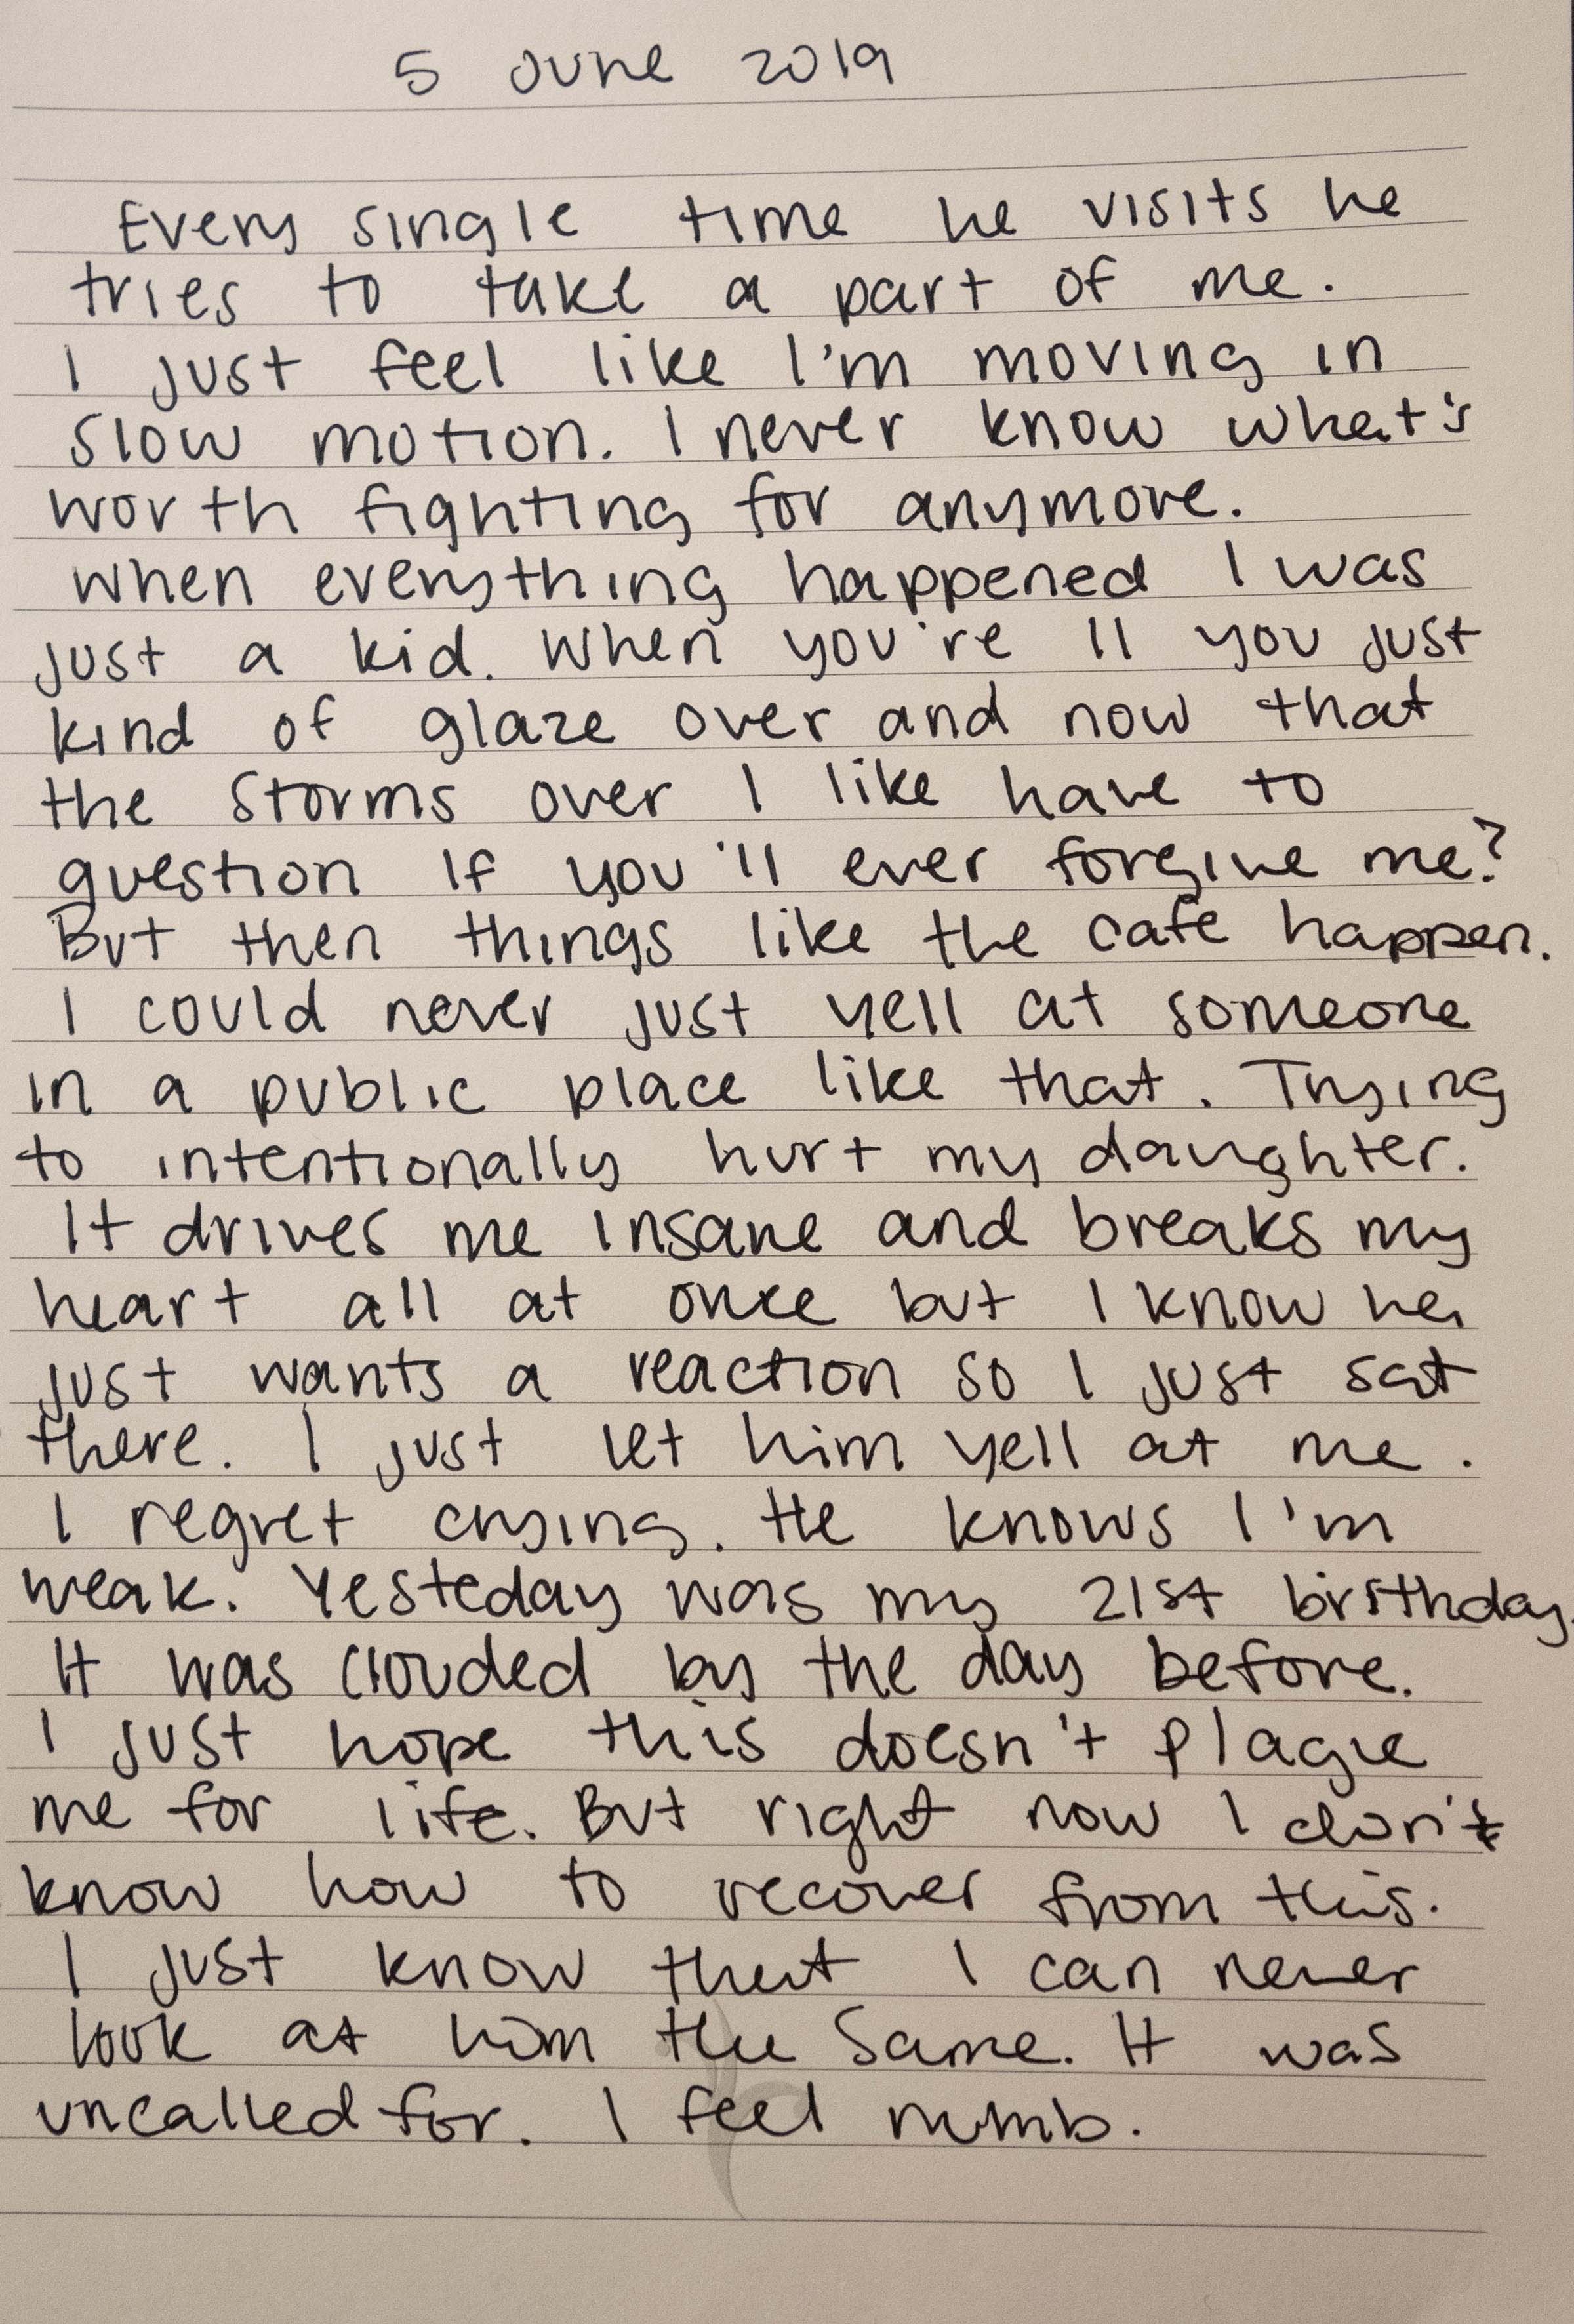 5 June 2019
Every single time he visits he
tries to take a part of me.
I just feel like I'm moving in
slow motion. I never know what's
worth fighting for anymore.
When everything happened I was
just a kid. When you're 11 you just
kind of glaze over and now that
the storms over I like have to
question if you'll ever forgive me?
But then things like the cafe happen.
I could never just yell at someone
in a public place like that. Trying
to intentionally hurt my daughter.
It drives me insane and breaks my
heart all at once but I know he
just wants a reaction so I just sat
there. I just let him yell at me.
I regret crying. He knows I'm
weak. Yesteday was my 21st birsthday.
It was clouded by the day before.
I just hope this doesn't plague
me for life. But right now I don't
know how to recover from this.
I just know that I can never
look at him the same. It was
uncalled for. I feel numb.